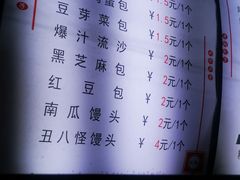 蛋包 ¥1.5元/1个
豆芽菜包 ¥1.5元/1个
爆汁流沙包 ¥2元/1个
黑芝麻包 ¥2元/1个
红豆包 ¥2元/1个
南瓜馒头 ¥2元/1个
丑八怪馒头 ¥4元/1个